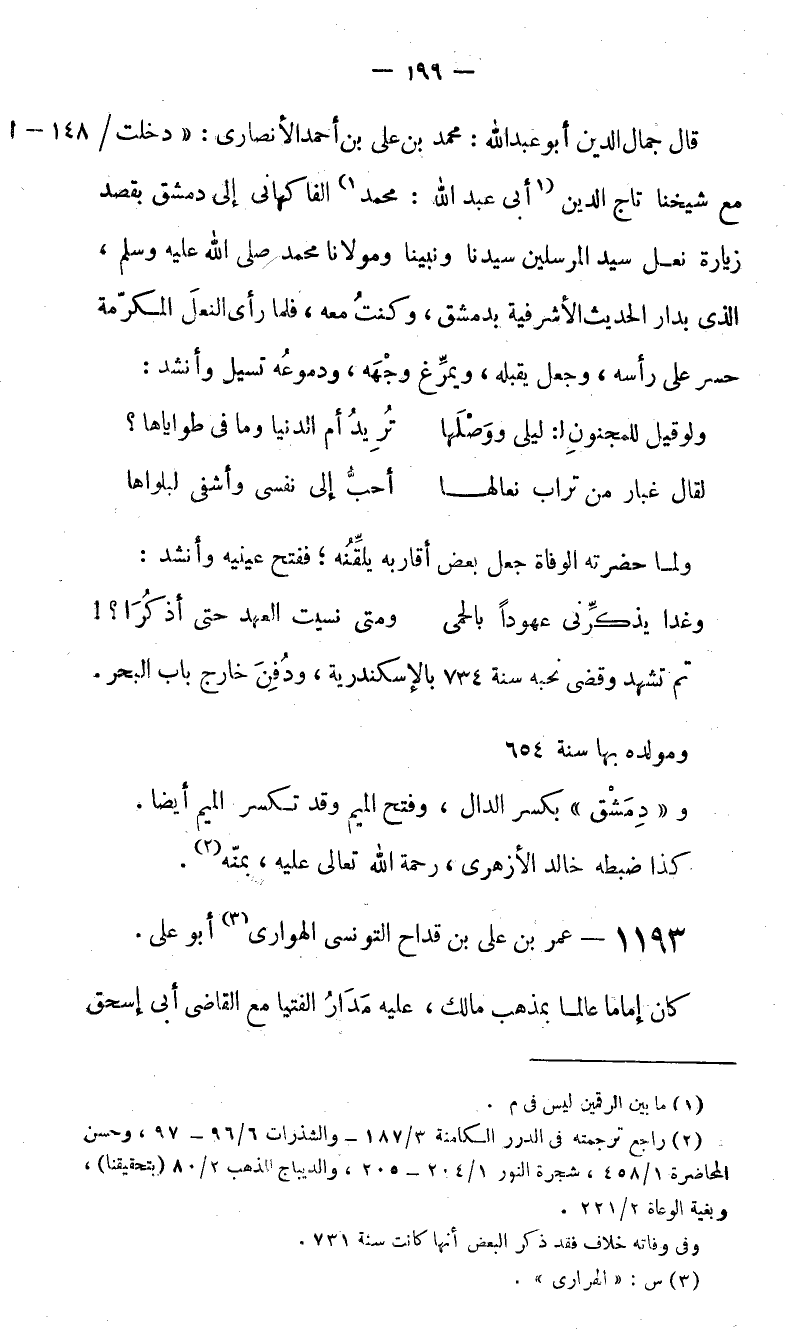 — ١٩٩ —
قال جمال الدين أبو عبدالله : محمد بن على بن أحمد الأنصارى : « دخلت / ١٤٨ – ا
مع شيخنا تاج الدين (١ أبى عبد الله : محمد ١) الفاكهانى إلى دمشق بقصد
زيارة نعل سيد المرسلين سيدنا ونبينا ومولانا محمد صلى الله عليه وسلم ،
الذى بدار الحديث الأشرفية بدمشق ، وكنتُ معه ، فلما رأى النعلَ المكرّمة
حسر على رأسه ، وجعل يقبله ، ويمرِّغ وجْهَه ، ودموعُه تسيل وأنشد :
ولو قيل للمجنونِ : ليلى ووَصْلَها تُرِيدُ أم الدنيا وما فى طواياها ؟
لقال غبار من تراب نعالها أحبُّ إلى نفسى وأشفى لبلواها
ولما حضرته الوفاة جعل بعض أقاربه يلقِّنُه ؛ ففتح عينيه وأنشد :
وغدا يذكِّرنى عهوداً بالحمى ومتى نسيت العهد حتى أذكُرَا ؟ !
ثم تشهد وقضى نحبه سنة ٧٣٤ بالإسكندرية ، ودُفِنَ خارج باب البحر .
ومولده بها سنة ٦٥٤
و « دِمَشْق » بكسر الدال ، وفتح الميم وقد تكسر الميم أيضا .
كذا ضبطه خالد الأزهرى ، رحمة الله تعالى عليه ، بمنّه (٢) .
١١٩٣ – عمر بن على بن قداح التونسى الهوارى (٣) أبو على .
كان إماما عالما بمذهب مالك ، عليه مَدَارُ الفتيا مع القاضى أبى إسحق
(١) ما بين الرقمين ليس فى م .
(٢) راجع ترجمته فى الدرر الكامنة ١٨٧/٣ – والشذرات ٩٦/٦ – ٩٧ ، وحسن
المحاضرة ٤٥٨/١ ، شجرة النور ٢٠٤/١ – ٢٠٥ ، والديباج المذهب ٨٠/٢ (بتحقيقنا) ،
وبغية الوعاة ٢٢١/٢ .
وفى وفاته خلاف فقد ذكر البعض أنها كانت سنة ٧٣١ .
(٣) س : « الهرارى » .